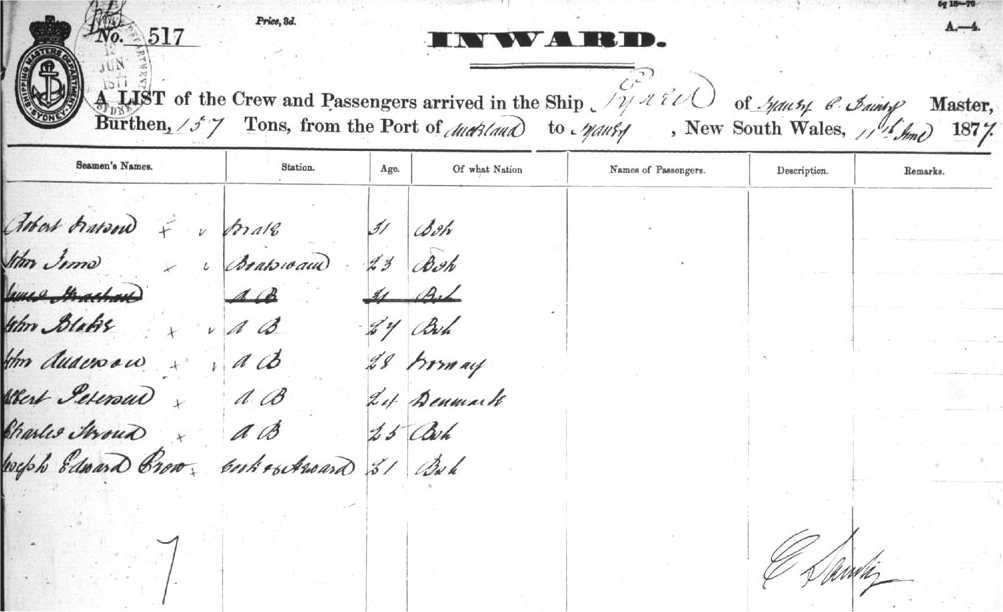 5g 15—76
Price, 3d.
A.—4.
No. 517
INWARD.
SHIPPING MASTERS DEPARTMENT SYDNEY
JUN
1877
A LIST of the Crew and Passengers arrived in the Ship of Master,
Burthen, 157 Tons, from the Port of Auckland to Sydney, New South Wales, 11th June 1877.
Seamen's Names. Station. Age. Of what Nation Names of Passengers. Description. Remarks.
Robert Mate 31 Bsh
John Boatswain 23 Bsh
James Strachan A B 31 Bsh
John Blake A B 27 Bsh
John Anderson A B 28 Norway
Albert Petersen A B 24 Denmark
Charles Stroud A B 25 Bsh
Joseph Edward Crow Cook & Steward 21 Bsh
7